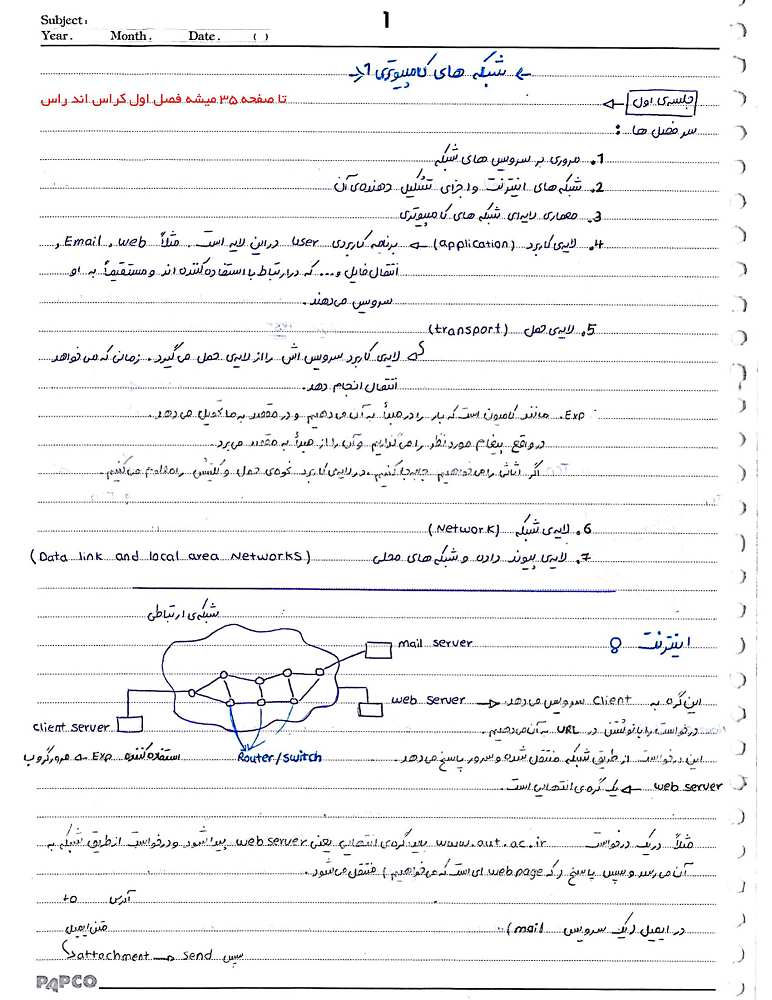 Subject:
1
Year. Month. Date. ( )
← شبکه های کامپیوتری 1 →
تا صفحه ۳۵ میشه فصل اول کراس اند راس
جلسه‌ی اول ←
سر فصل ها :
1. مروری بر سرویس های شبکه
2. شبکه های اینترنت و اجزای تشکیل دهنده‌ی آن
3. معماری لایه‌ای شبکه های کامپیوتری
4. لایه‌ی کاربرد (application) ← برنامه کاربردی user در این لایه است. مثلاً Email, web,
انتقال فایل و... که در ارتباط با استفاده کننده اند و مستقیماً به او
سرویس می‌دهند.
5. لایه‌ی حمل (transport)
لایه‌ی کاربرد سرویس اش را از لایه‌ی حمل می‌گیرد. زمانی که می‌خواهد
انتقال انجام دهد.
Exp. مانند کامیون است که بار را در مبدأ به آن می‌دهیم و در مقصد به ما تحویل می‌دهد.
در واقع پیغام مورد نظر را می‌گذاریم و آن را از مبدأ به مقصد می‌برد.
اگر اثاثی را می‌خواهیم جابه‌جا کنیم، در لایه‌ی کاربرد نحوه‌ی حمل و را معلوم می‌کنیم.
6. لایه‌ی شبکه (Network)
7. لایه‌ی پیوند دادن و شبکه های محلی (Data link and local area Networks)
شبکه‌ی ارتباطی
اینترنت :
mail server
web server
client server
Router/switch
استفاده کننده Exp → مرورگر وب
این گره به client سرویس می‌دهد
درخواست را با نوشتن در URL به آن می‌دهیم.
این درخواست از طریق شبکه منتقل شده و سرور پاسخ می‌دهد.
web server ← یک گره‌ی انتهایی است.
مثلاً در یک درخواست www.aut.ac.ir باید گره‌ی انتهایی یعنی web server پیدا شود و درخواست از طریق شبکه به
آن می‌رسد و سپس پاسخ (که web page ای است که می‌خواهیم) منتقل می‌شود.
آدرس to
در ایمیل (یک سرویس mail) متن ایمیل
attachment → send سپس
PAPCO